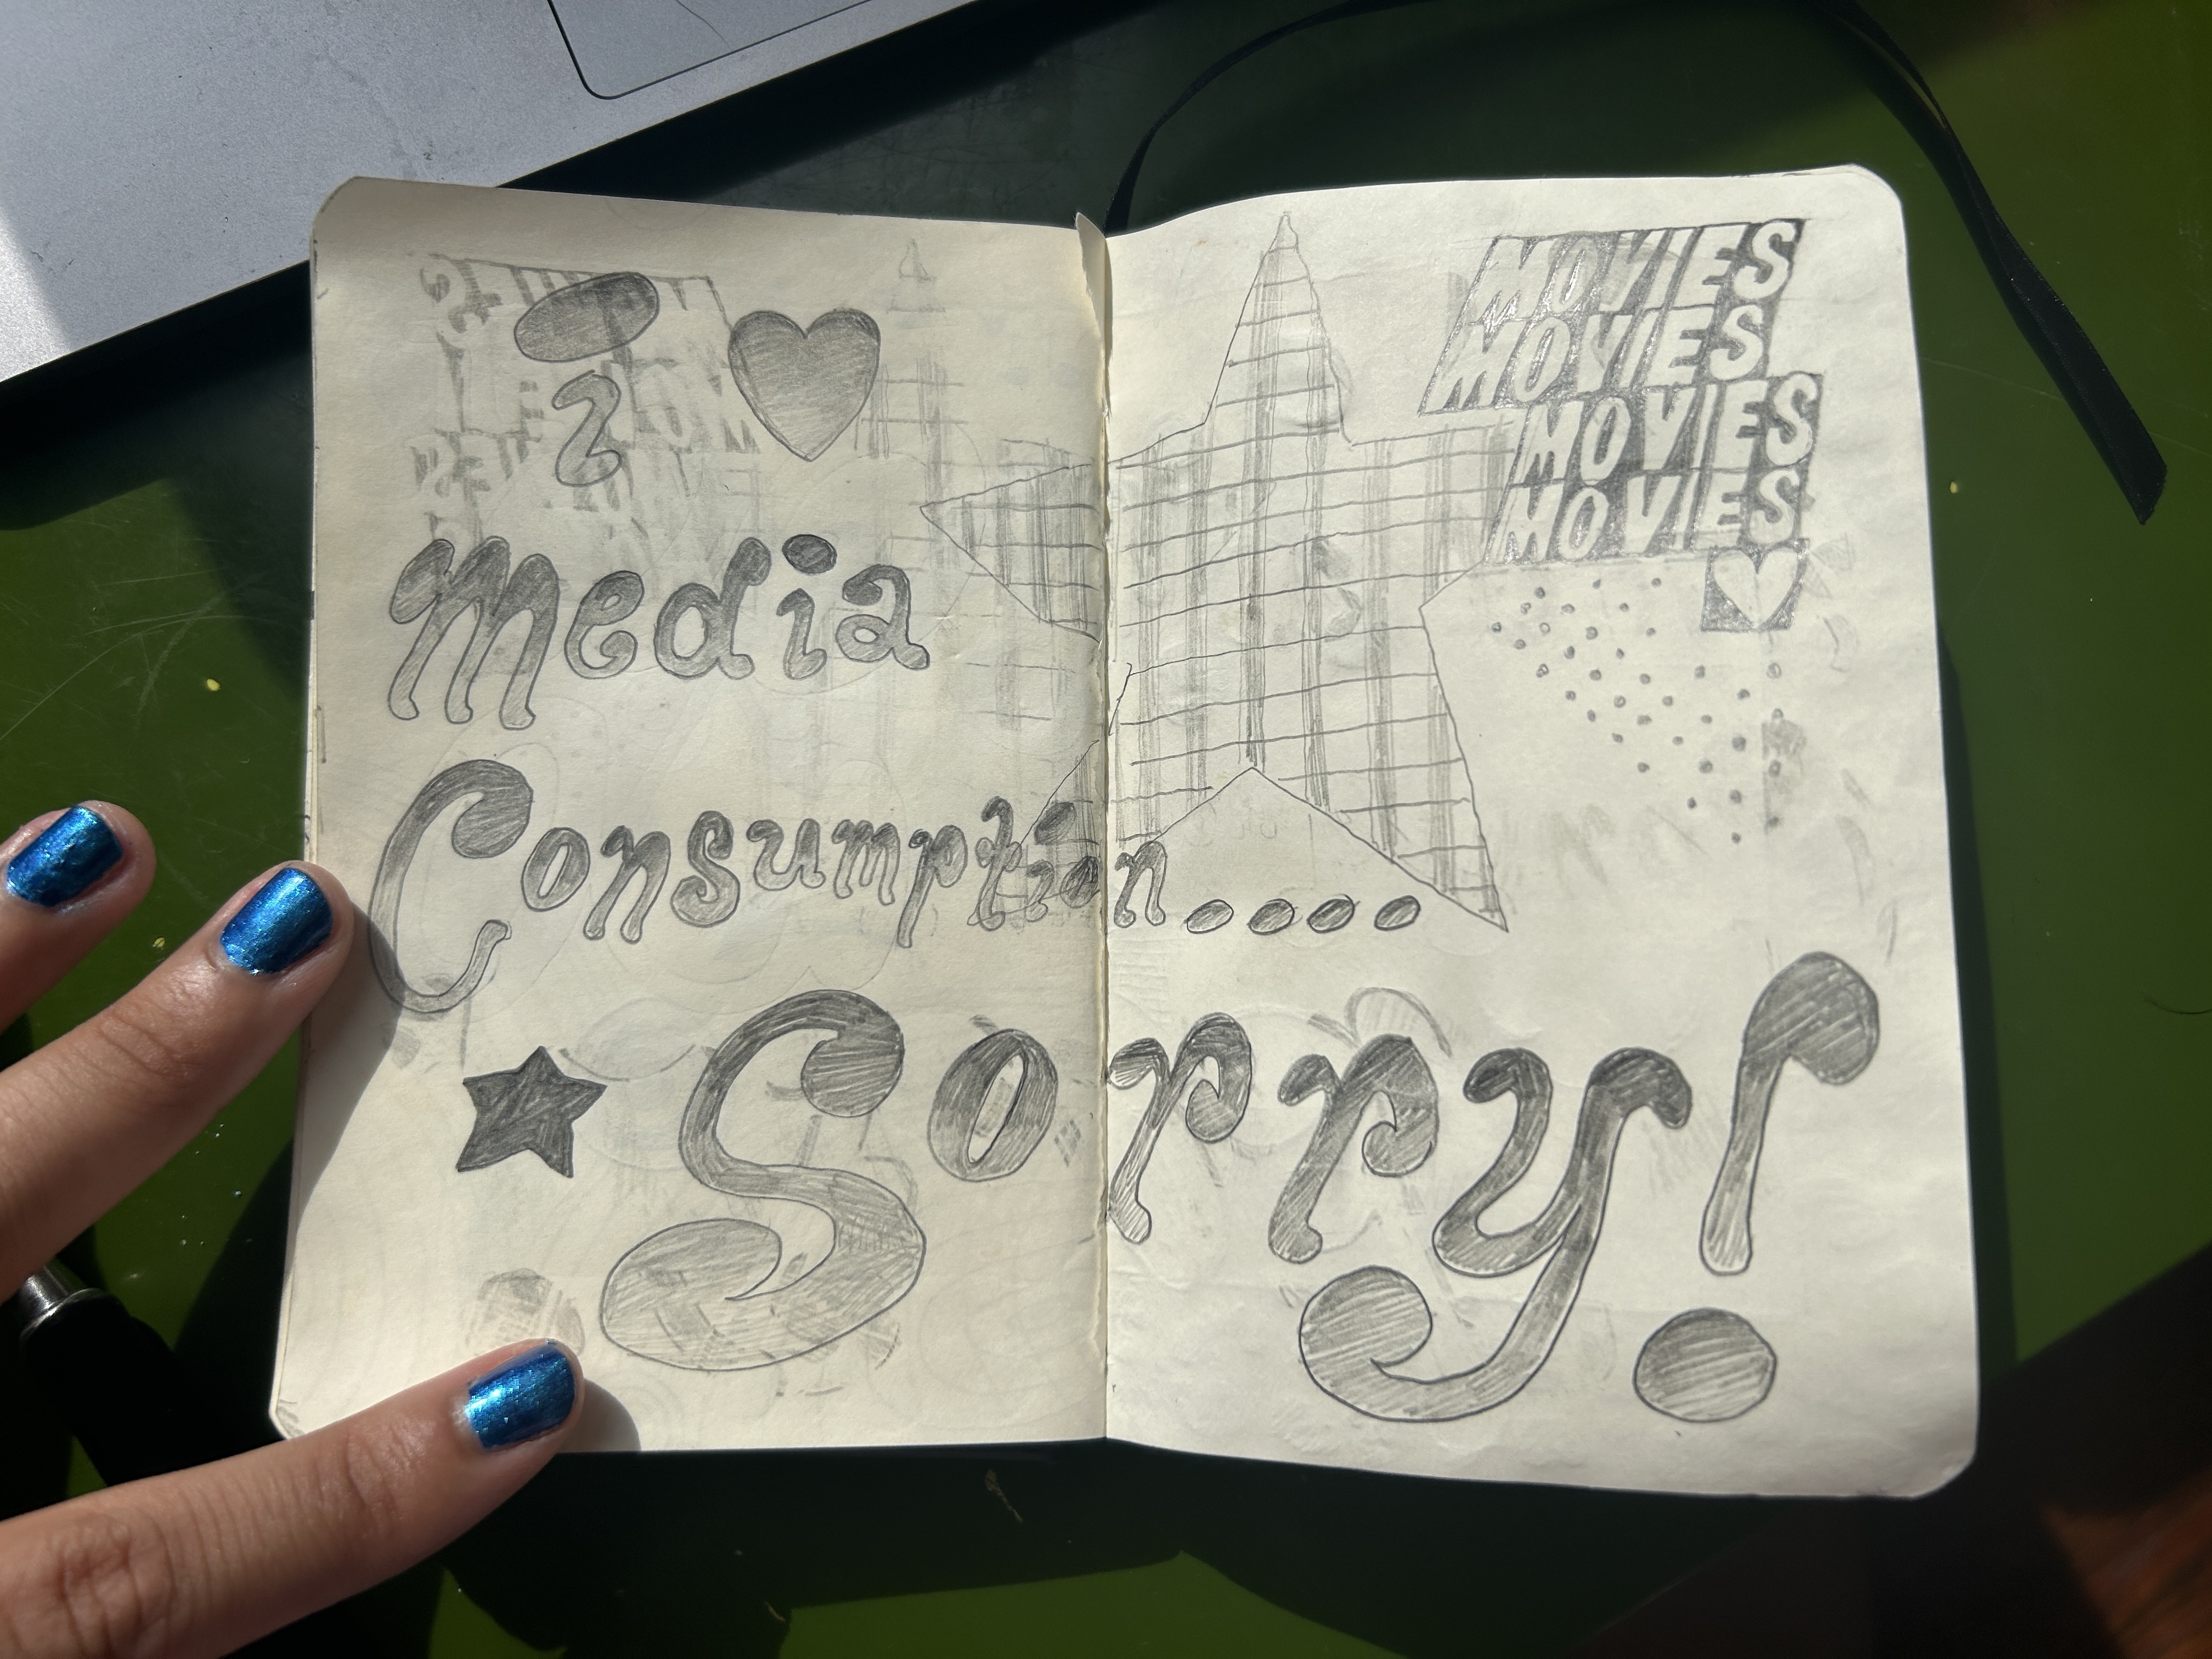 i ♥
Media
Consumption....
★ Sorry!
MOVIES
MOVIES
MOVIES
MOVIES
♥